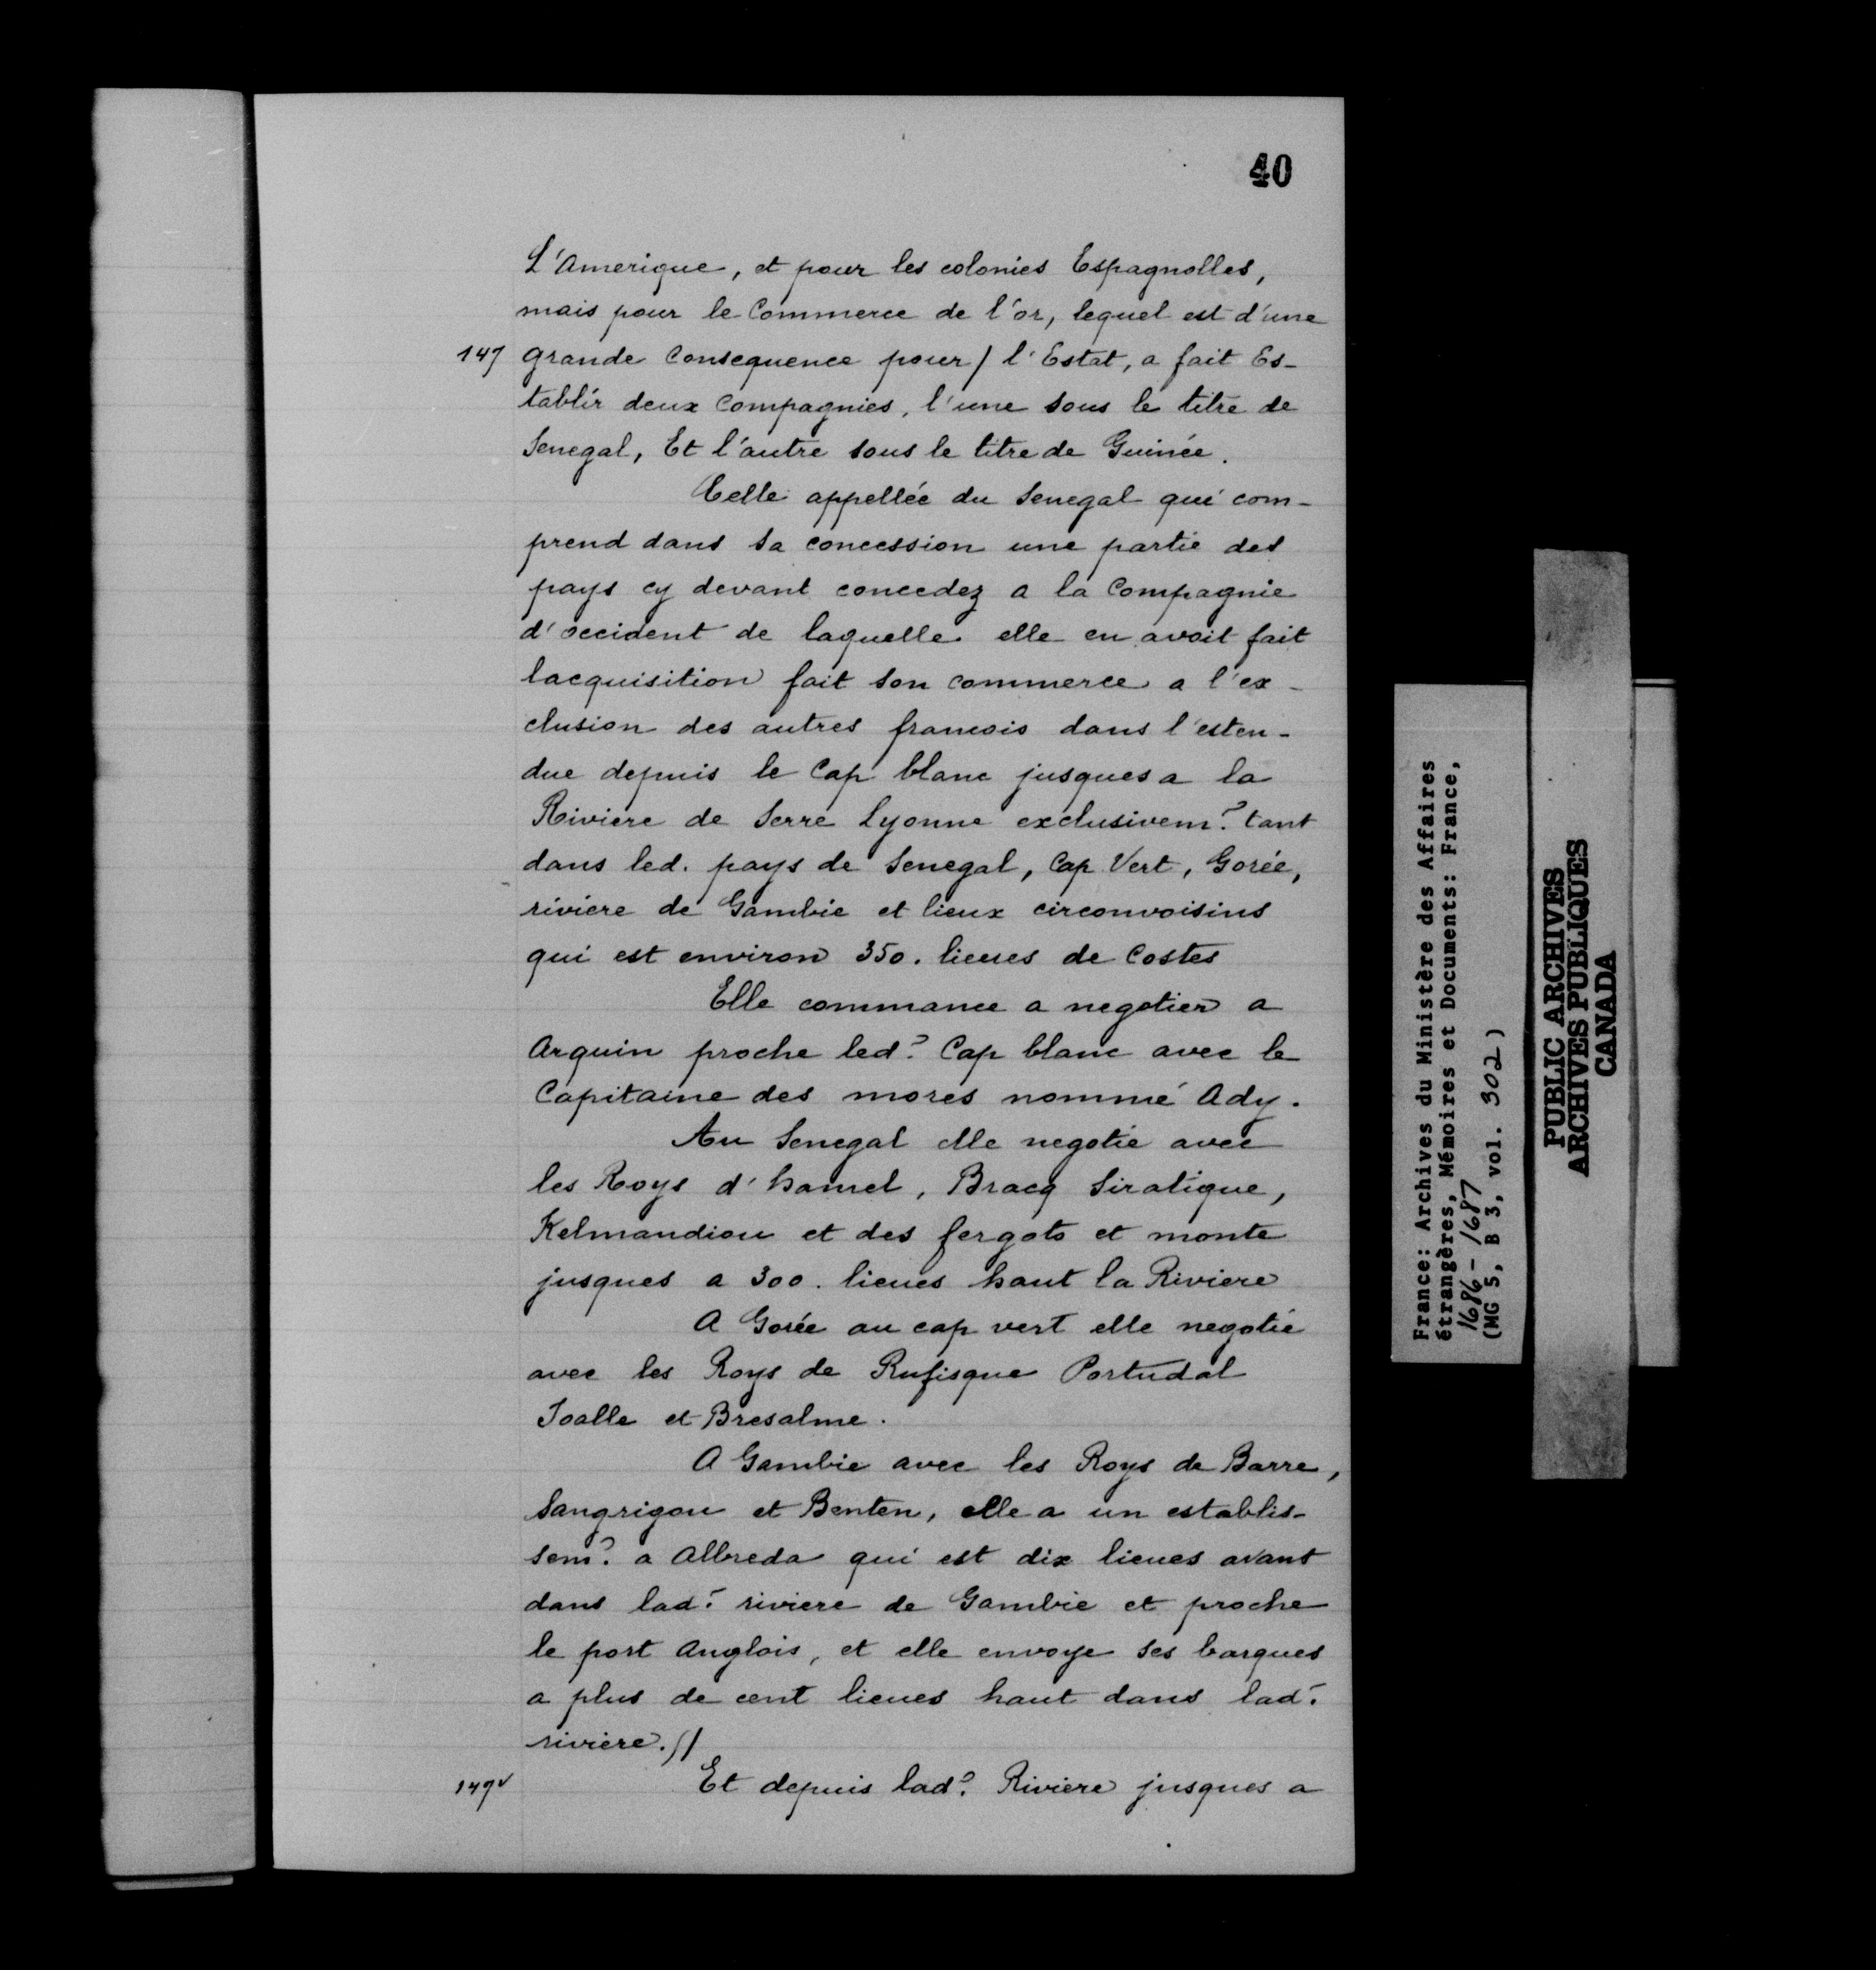 40
L'Amerique, et pour les colonies Espagnolles,
mais pour le Commerce de l'or, lequel est d'une
147 grande Consequence pour / l'Estat, a fait Es-
tablir deux Compagnies, l'une sous le titre de
Senegal, Et l'autre sous le titre de Guinée.
Celle appellée du Senegal qui com-
prend dans sa concession une partie des
pays cy devant concedez a la Compagnie
d'occident de laquelle elle en avoit fait
lacquisition fait son commerce a l'ex-
clusion des autres francois dans l'esten-
due depuis le Cap blanc jusques a la
Riviere de Serre Lyonne exclusivem.t tant
dans led. pays de Senegal, Cap Vert, Gorée,
riviere de Gambie et lieux circonvoisins
qui est environ 350. lieues de Costes
Elle commance a negotier a
Arguin proche led.t Cap blanc avec le
Capitaine des mores nommé Ady.
Au Senegal elle negotie avec
les Roys d'hamel, Bracq Siratique,
Kelmandiou et des fergots et monte
jusques a 300. lieues haut la Riviere
A Gorée au cap vert elle negotie
avec les Roys de Rufisque Portudal
Joalle et Bresalme.
A Gambie avec les Roys de Barre,
Sangrigou et Benten, elle a un establis-
sem.t a Albreda qui est dix lieues avant
dans lad.e riviere de Gambie et proche
le port Anglois, et elle envoye ses barques
a plus de cent lieues haut dans lad.e
riviere.//
149v Et depuis lad.e Riviere jusques a
France: Archives du Ministère des Affaires
étrangères, Mémoires et Documents: France,
1686-1687
(MG 5, B 3, vol. 302)
PUBLIC ARCHIVES
ARCHIVES PUBLIQUES
CANADA